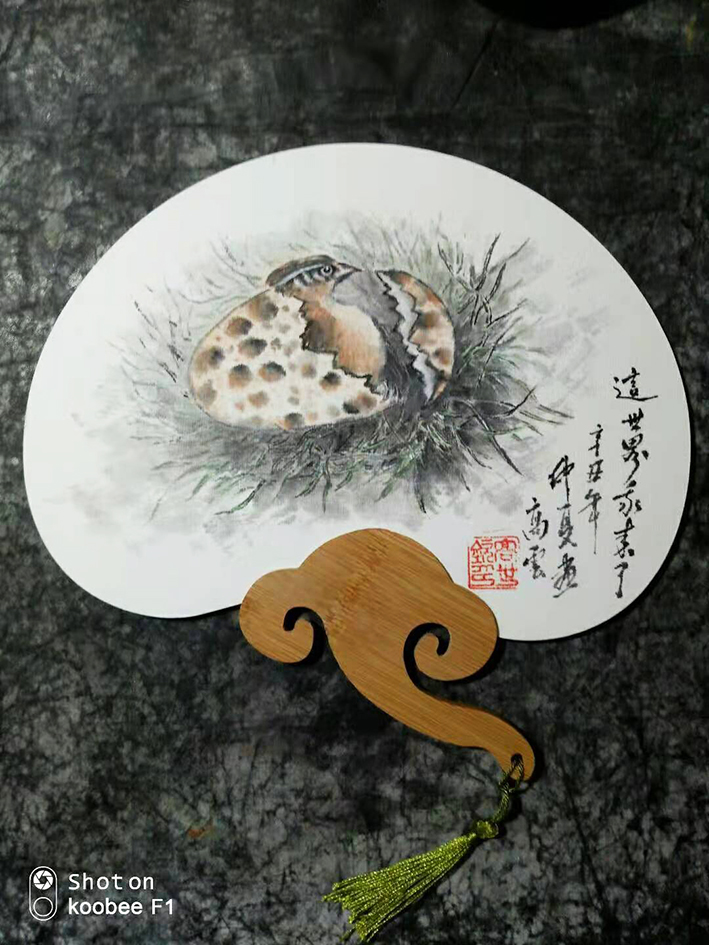 這世界我来了
辛丑年
仲夏画
高雲
Shot on
koobee F1